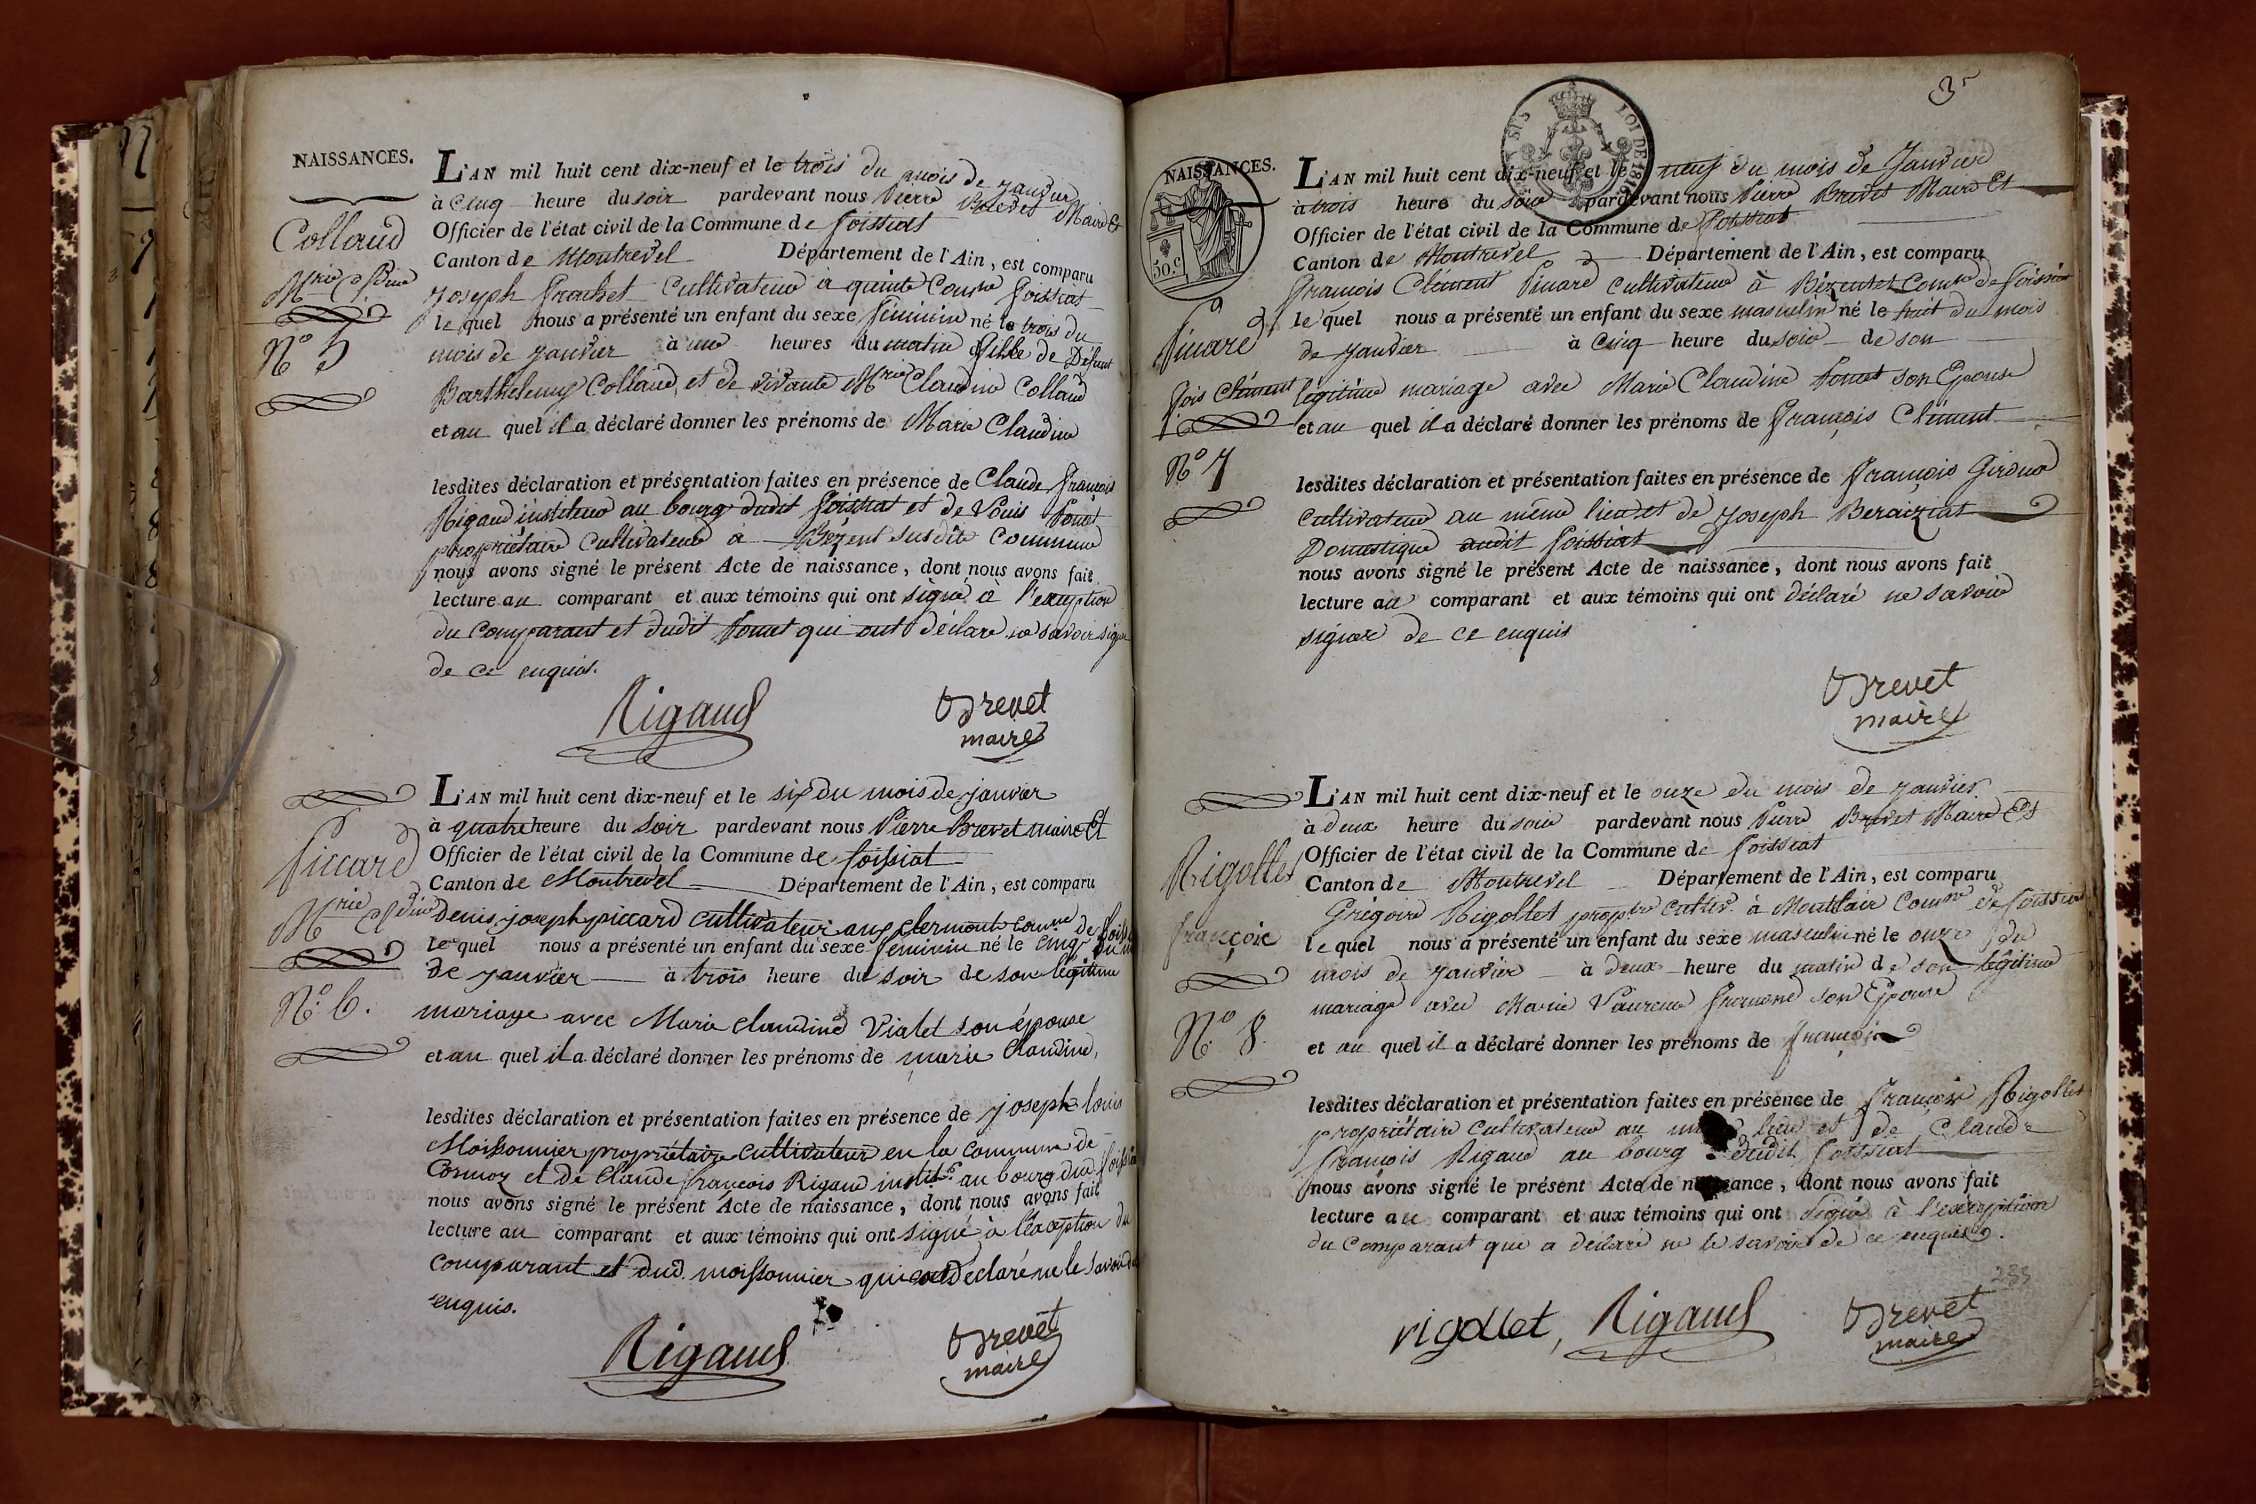 NAISSANCES.
Collaud
Mrie Cdine
N° 5
L'AN mil huit cent dix-neuf et le trois du mois de janvier
à cinq heure du soir pardevant nous Pierre Brevet Maire Et
Officier de l'état civil de la Commune de foissiat
Canton de Montrevel Département de l'Ain, est comparu
joseph Cultivateur à Comne foissiat
le quel nous a présenté un enfant du sexe féminin né le trois du
mois de janvier à une heures du matin fille de Défunt
Barthelemy Collaud, et de vivante Mrie Claudine Collaud
et au quel il a déclaré donner les prénoms de Marie Claudine
lesdites déclaration et présentation faites en présence de Claude françois
Rigaud instituteur au bourg dudit foissiat et de Louis
propriétaire Cultivateur à susdite Commune
nous avons signé le présent Acte de naissance, dont nous avons fait
lecture au comparant et aux témoins qui ont signé à l'exception
du comparant et dudit qui ont déclaré ne savoir signer
de ce enquis.
Rigaud
Brevet
maire
Piccard
Mrie Cldine
N° 6.
L'AN mil huit cent dix-neuf et le six du mois de janvier
à quatre heure du soir pardevant nous Pierre Brevet maire Et
Officier de l'état civil de la Commune de foissiat
Canton de Montrevel Département de l'Ain, est comparu
denis joseph piccard cultivateur aux clermonts comne de foissiat
le quel nous a présenté un enfant du sexe féminin né le cinq du mois
de janvier à trois heure du soir de son légitime
mariage avec Marie claudine Vialet son épouse
et au quel il a déclaré donner les prénoms de marie Claudine,
lesdites déclaration et présentation faites en présence de joseph louis
Moissonnier propriétaire cultivateur en la commune de
Cormoz et de Claude françois Rigaud instit. au bourg dud. foissiat
nous avons signé le présent Acte de naissance, dont nous avons fait
lecture au comparant et aux témoins qui ont signé à l'exception du
comparant et dud. moissonnier qui ont déclaré ne le savoir de ce
enquis.
Rigaud
Brevet
maire
3
LOI DE 1816
50.c
NAISSANCES.
Picard
fois Clément
N° 7
L'AN mil huit cent dix-neuf et le neuf du mois de Janvier
à trois heure du soir pardevant nous Pierre Brevet Maire Et
Officier de l'état civil de la Commune de foissiat
Canton de Montrevel Département de l'Ain, est comparu
François Clément Picard cultivateur à Bézentet Comne de foissiat
le quel nous a présenté un enfant du sexe masculin né le huit du mois
de janvier à cinq heure du soir de son
légitime mariage avec Marie Claudine son Epouse
et au quel il a déclaré donner les prénoms de François Clément
lesdites déclaration et présentation faites en présence de François
cultivateur au même lieu et de joseph Beraiziat
Domestique audit foissiat
nous avons signé le présent Acte de naissance, dont nous avons fait
lecture au comparant et aux témoins qui ont déclaré ne savoir
signer de ce enquis
Brevet
maire
Rigollet
françois
N° 8.
L'AN mil huit cent dix-neuf et le onze du mois de janvier
à deux heure du soir pardevant nous Pierre Brevet Maire Et
Officier de l'état civil de la Commune de foissiat
Canton de Montrevel Département de l'Ain, est comparu
Grégoire Rigollet proptre cultivr. à Montclair Comne de foissiat
le quel nous a présenté un enfant du sexe masculin né le onze du
mois de janvier à deux heure du matin de son légitime
mariage avec Marie Laurence son Epouse
et au quel il a déclaré donner les prénoms de françois
lesdites déclaration et présentation faites en présence de François Rigollet
propriétaire cultivateur au lieu et de Claude
François Rigaud au bourg dudit foissiat
nous avons signé le présent Acte de naissance, dont nous avons fait
lecture au comparant et aux témoins qui ont signé à l'exception
du comparant qui a déclaré ne le savoir de ce enquis.
233
rigollet, Rigaud
Brevet
maire